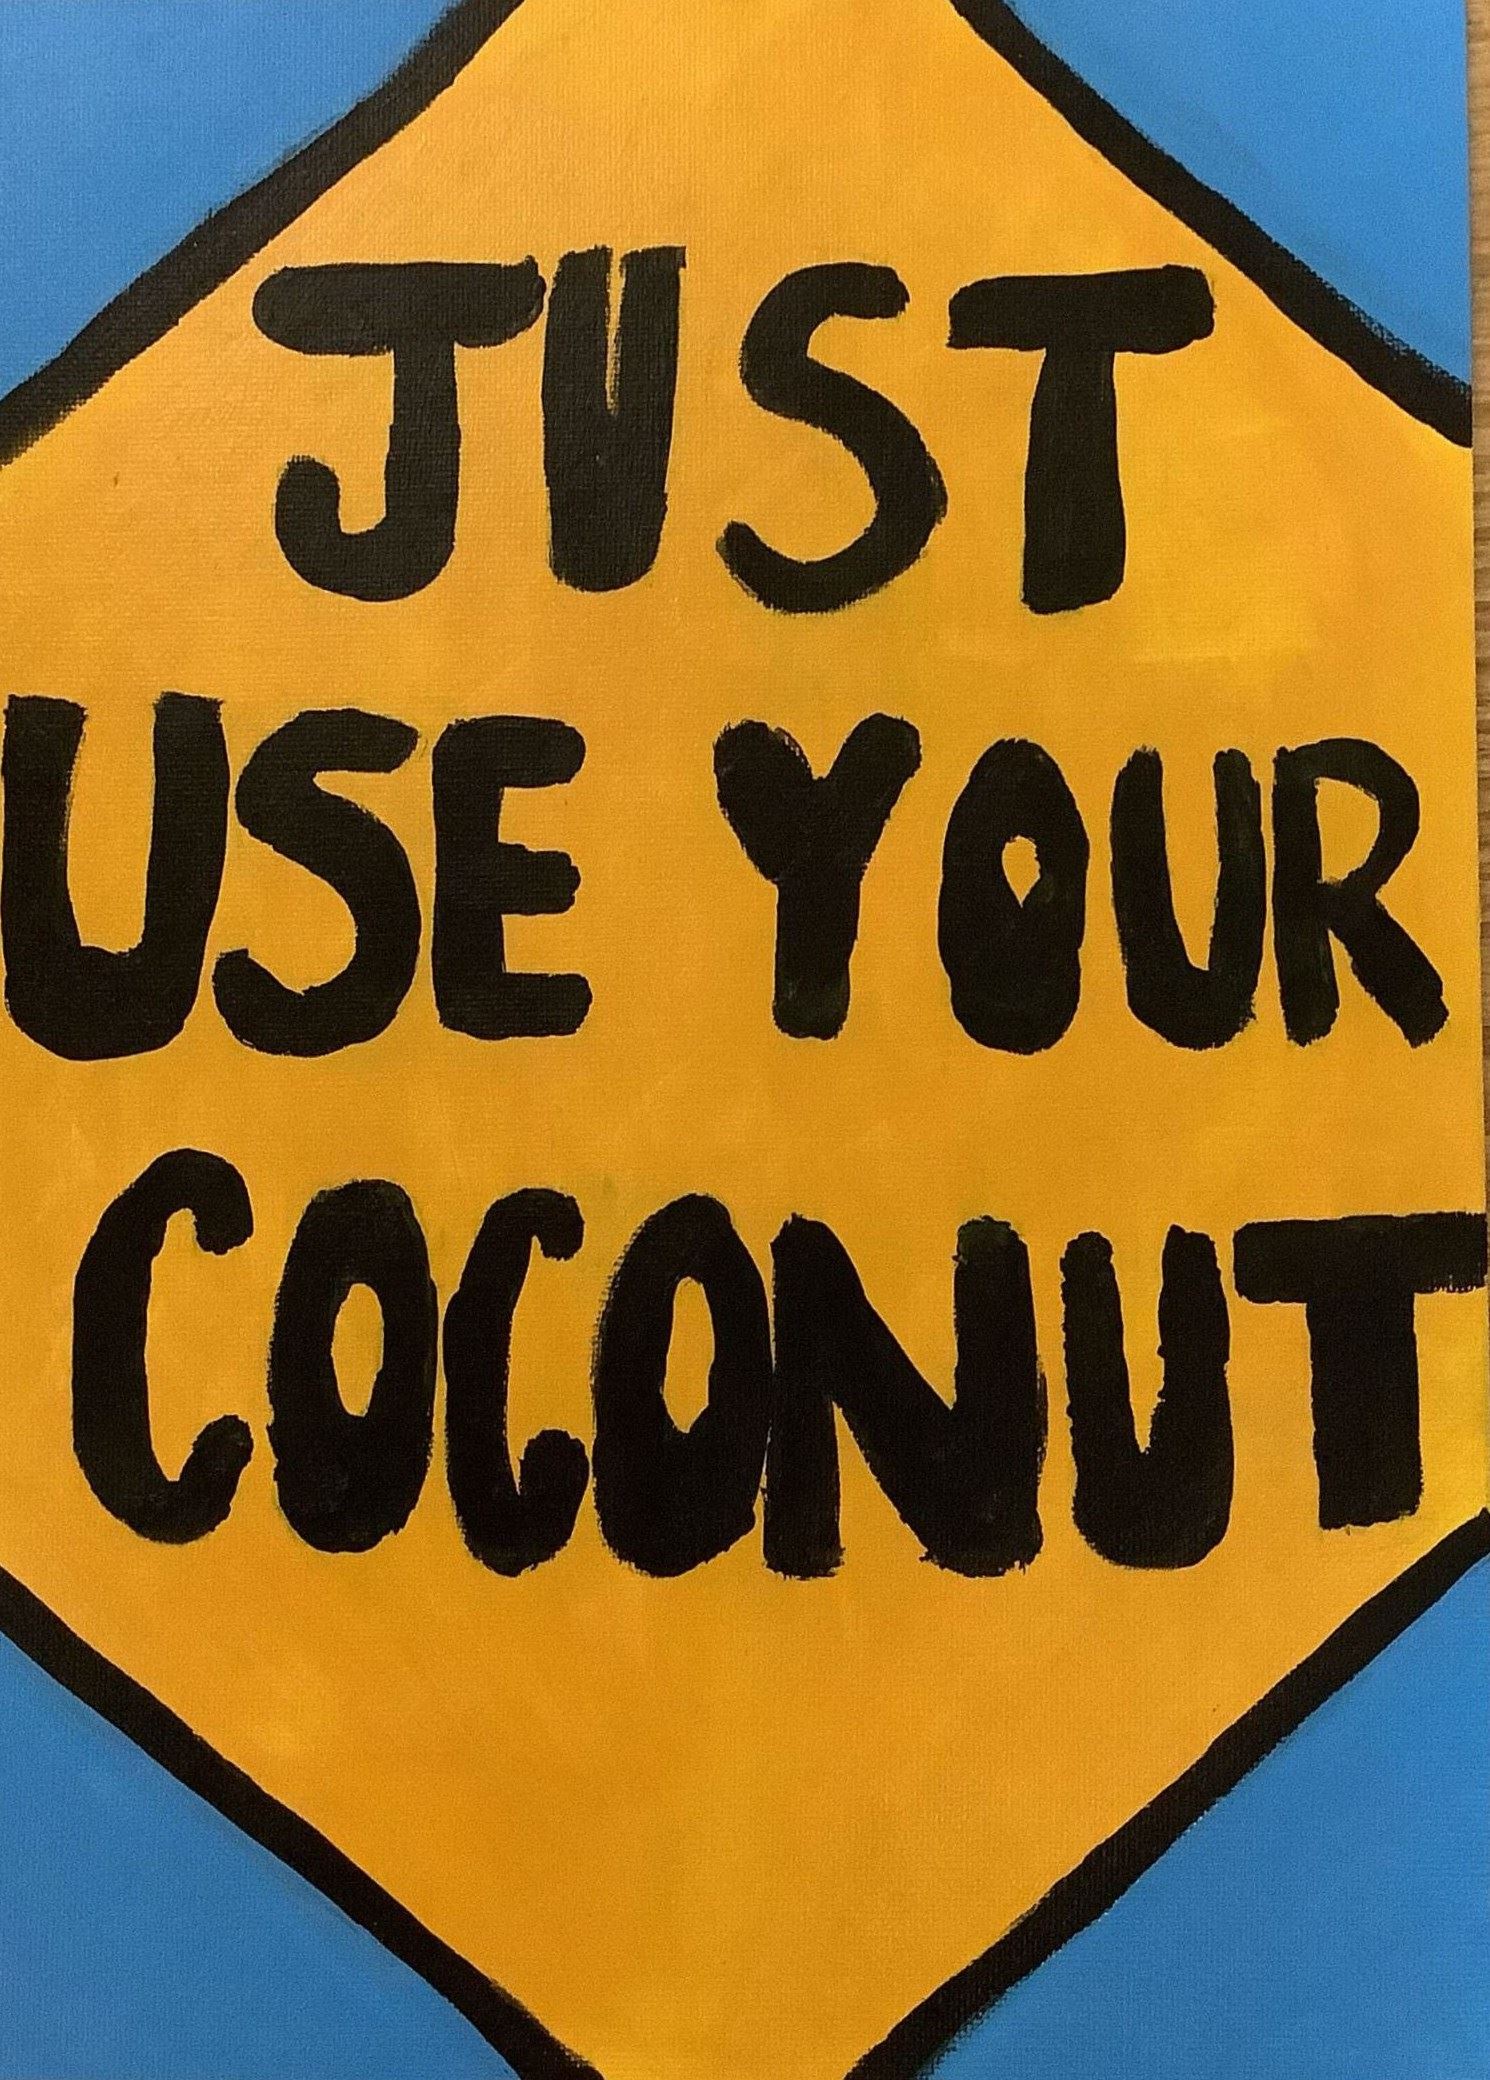 JUST
USE YOUR
COCONUT